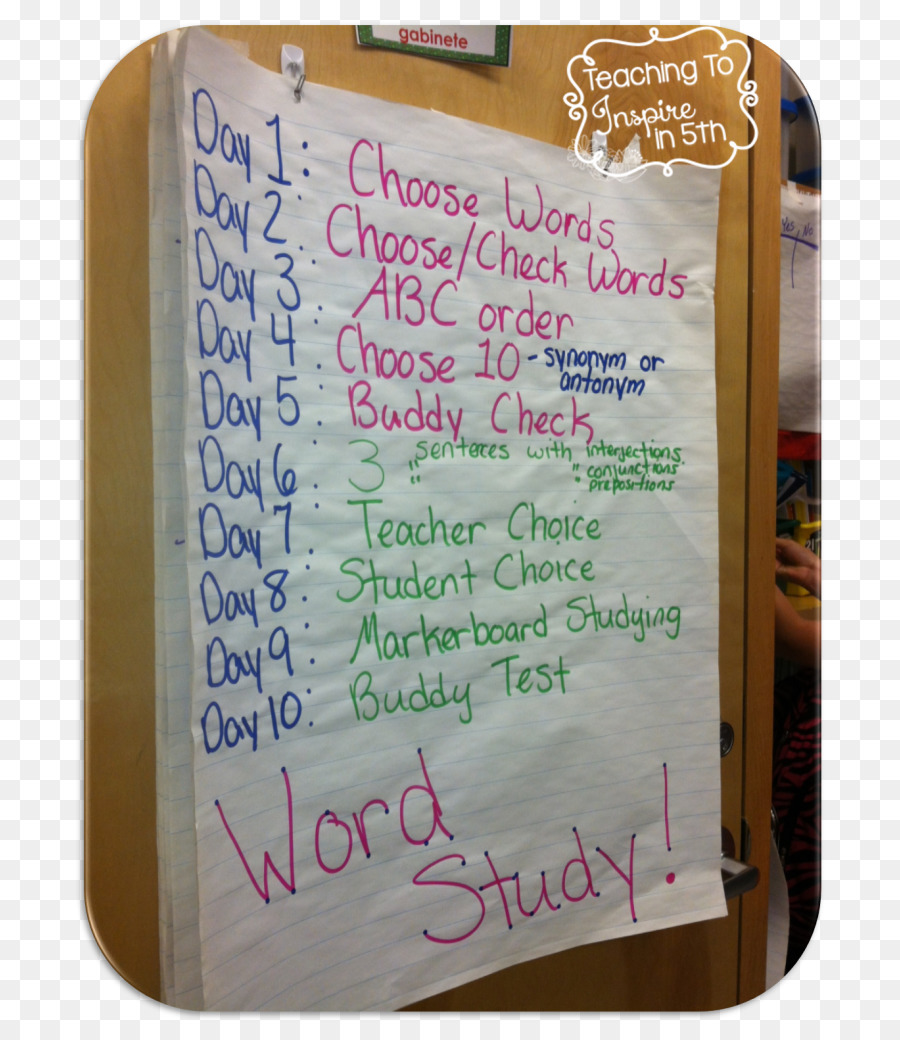 gabinete
Teaching To
Inspire
in 5th
Yes No
Day 1: Choose Words
Day 2: Choose/Check Words
Day 3: ABC order
Day 4: Choose 10 - synonym or
antonym
Day 5: Buddy Check
Day 6: 3 senteces with interjections.
" " conjunctions
" " prepositions
Day 7: Teacher Choice
Day 8: Student Choice
Day 9: Markerboard Studying
Day 10: Buddy Test
Word
Study!